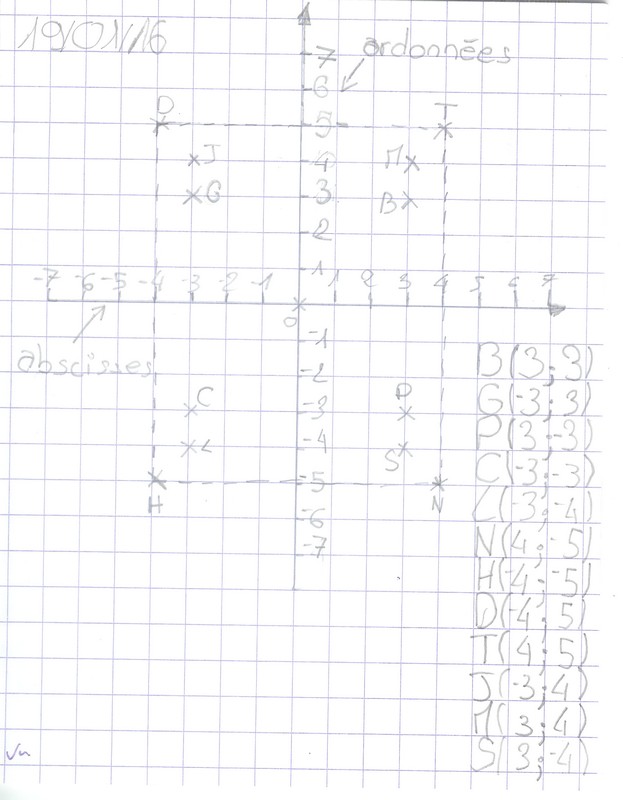 19/01/16
ordonnées
7
6
D
5
T
J
4
M
G
3
B
2
1
-7 -6 -5 -4 -3 -2 -1 1 2 3 4 5 6 7
O
-1
abscisses
-2
C
-3
P
L
-4
S
-5
H
N
-6
-7
B(3;3)
G(-3;3)
P(3;-3)
C(-3;-3)
L(-3;-4)
N(4;-5)
H(-4;-5)
D(-4;5)
T(4;5)
J(-3;4)
M(3;4)
S(3;-4)
Vu